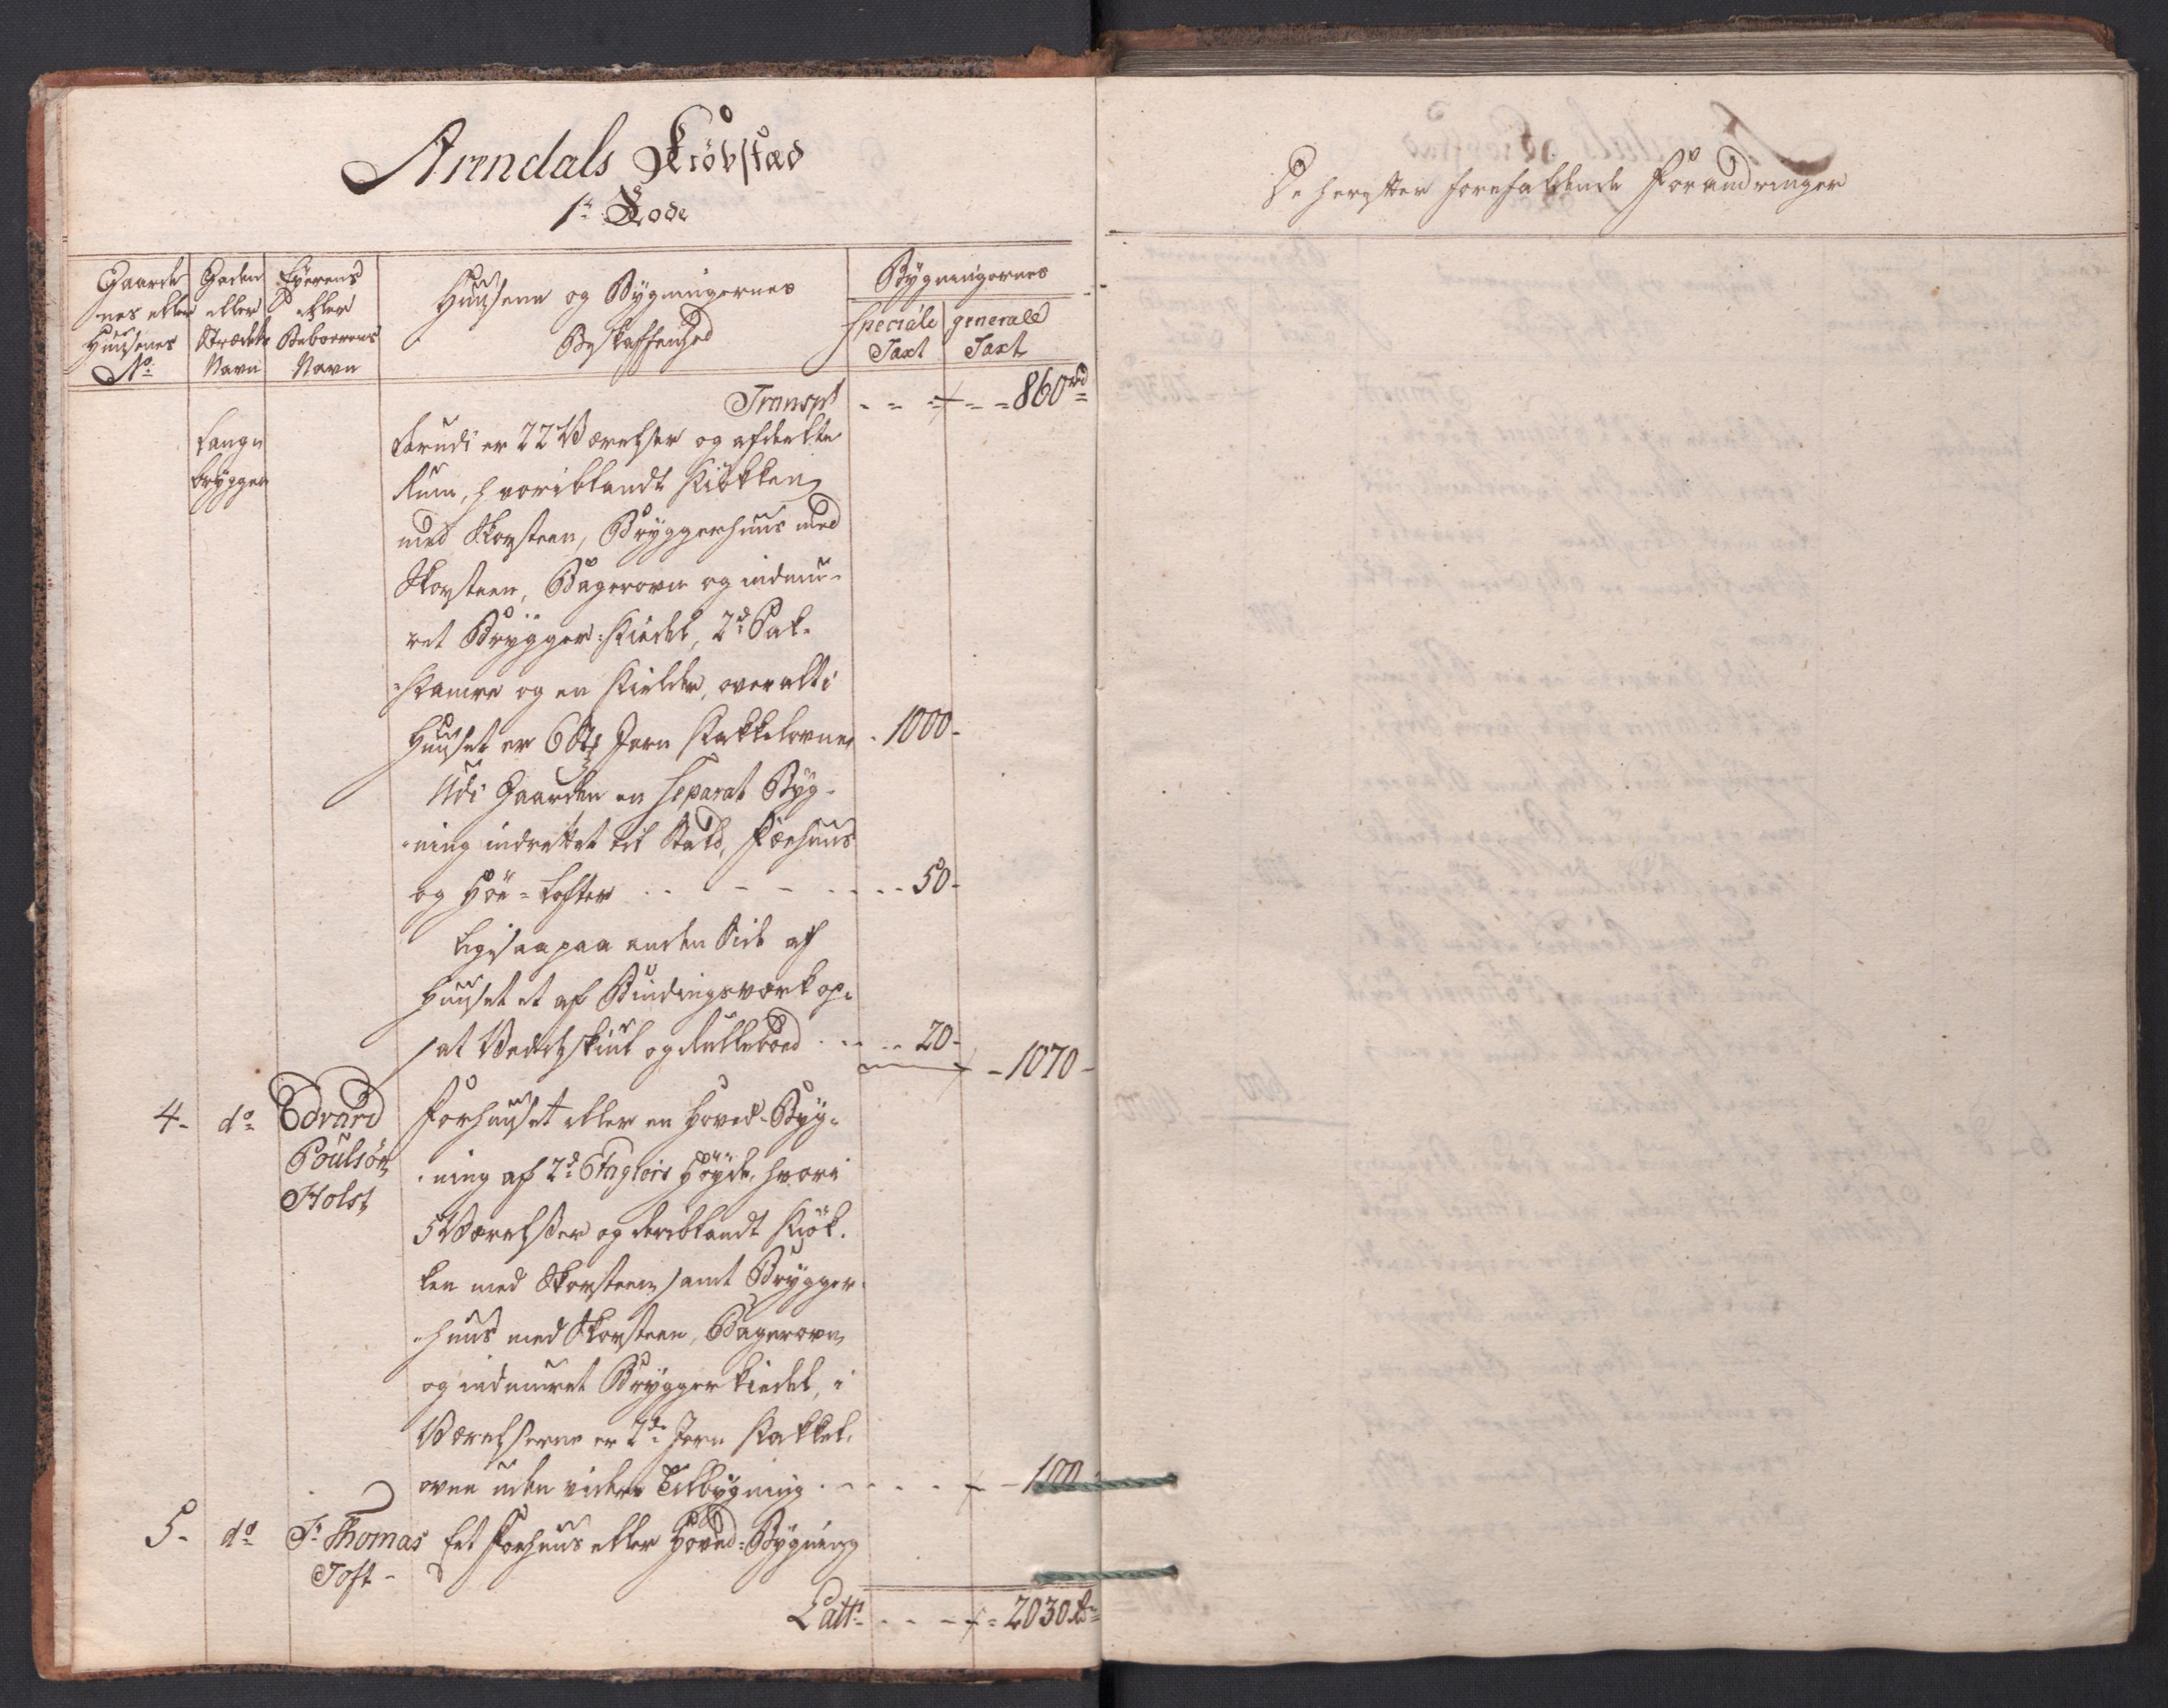 Arendals Kiøbstæd
1ste Rode
Gaarde
nes eller
Huusenes
No
Gaden
eller
Strædets
Navn
Eyerens
eller
Beboerens
Navn
Huusene og Bygningernes
Beskaffenhed
Bygningernes
speciale
Taxt
generale
Taxt
Transpt - - - 860 rd
Lange
bryggen
Herudi er 22 Værelser og afdeelte
Rum, hvoriblandt Kiökken
med Skorsteen, Bryggerhuus med
Skorsteen, Bagerovn og indmu-
ret Brygger-Kiedel, 2de Pak-
-Kamre og en Kielder, overalt i
Huuset er 6 St. Jern Kakkelovne - 1000 -
Udi Gaarden en separat Byg-
-ning indrettet til Stald, Fæehuus
og Höe-Lofter - - - - 50 -
Ligesaa paa anden Side af
Huuset et af Bindingsværk op-
sat Vedeskiul og Rullebod - - - 20 -
- 1070 -
4 - do Edvard
Poulsön
Holst
Forhuuset eller en Hoved-Byg-
-ning af 2de Etagiers Höyde, hvori
5 Værelser og deriblandt Kiök-
ken med Skorsteen samt Brygger-
-huus med Skorsteen, Bagerovn
og indmuret Bryggerkiedel, i
Værelserne er 2de Jern Kakkel-
ovne uden videre Tilbygning - - - - 100
5 - do Sr Thomas
Toft -
Eet Forhuus eller Hoved-Bygning
Latts - - - 2030 rd
De herefter forefaldende Forandringer